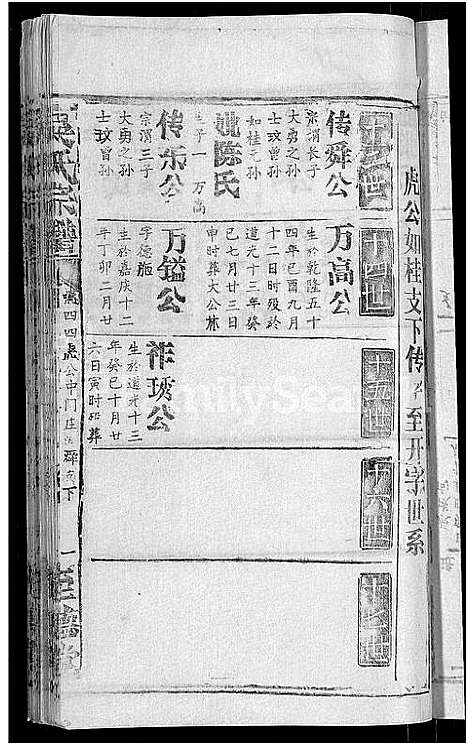 虎公如桂支下传至开字世系
十五世
十六世
传舜公
宗渭长子
大勇之孙
士玟曾孙
如桂元孙
妣陈氏
生子一 万高
传乐公
宗渭三子
大勇之孙
士玟曾孙
万高公
生於乾隆五十
四年己酉九月
十二日时殁於
道光十三年癸
巳七月廿三日
申时葬大公林
万镒公
字德
生於嘉庆十二
年丁卯二月廿
祚琇公
生於道光十三
年癸巳十月廿
六日寅时殁葬
吴氏宗谱
四四 虎公中门庄
下
一
至德堂
FamilySea